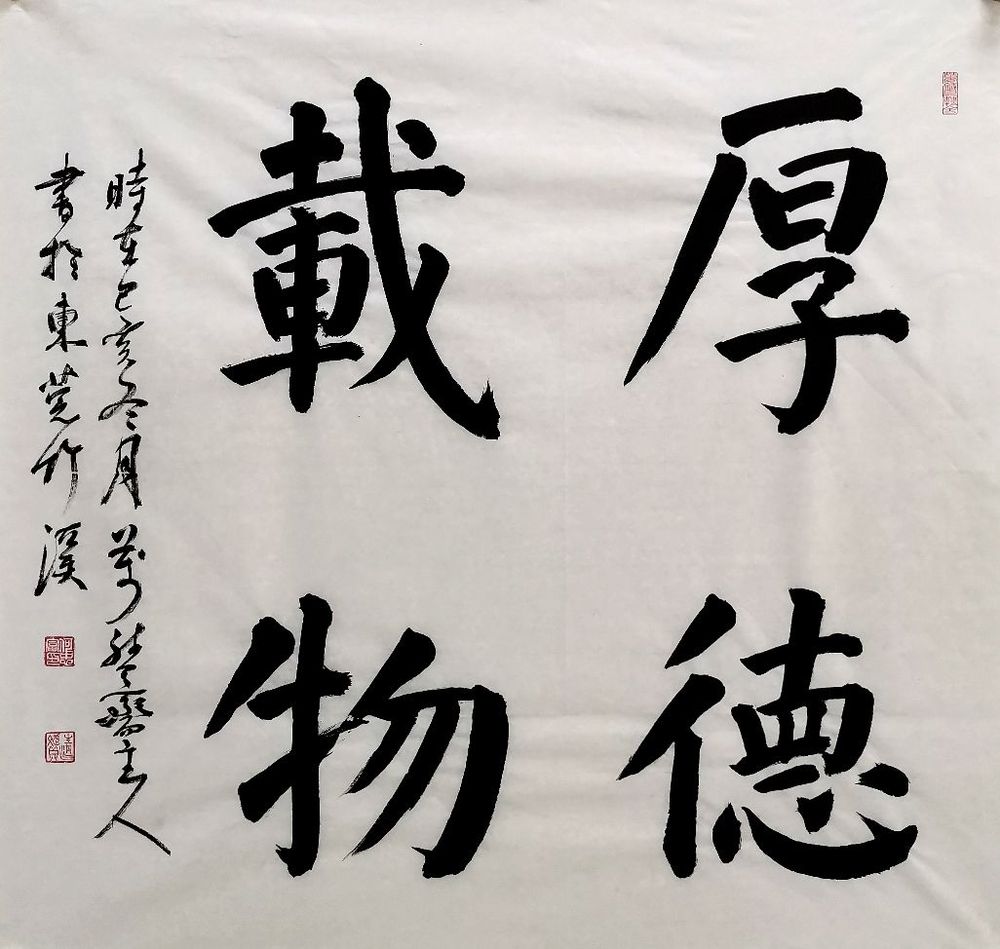 厚德
載物
時在己亥冬月萬	齋主人
書於東莞竹溪